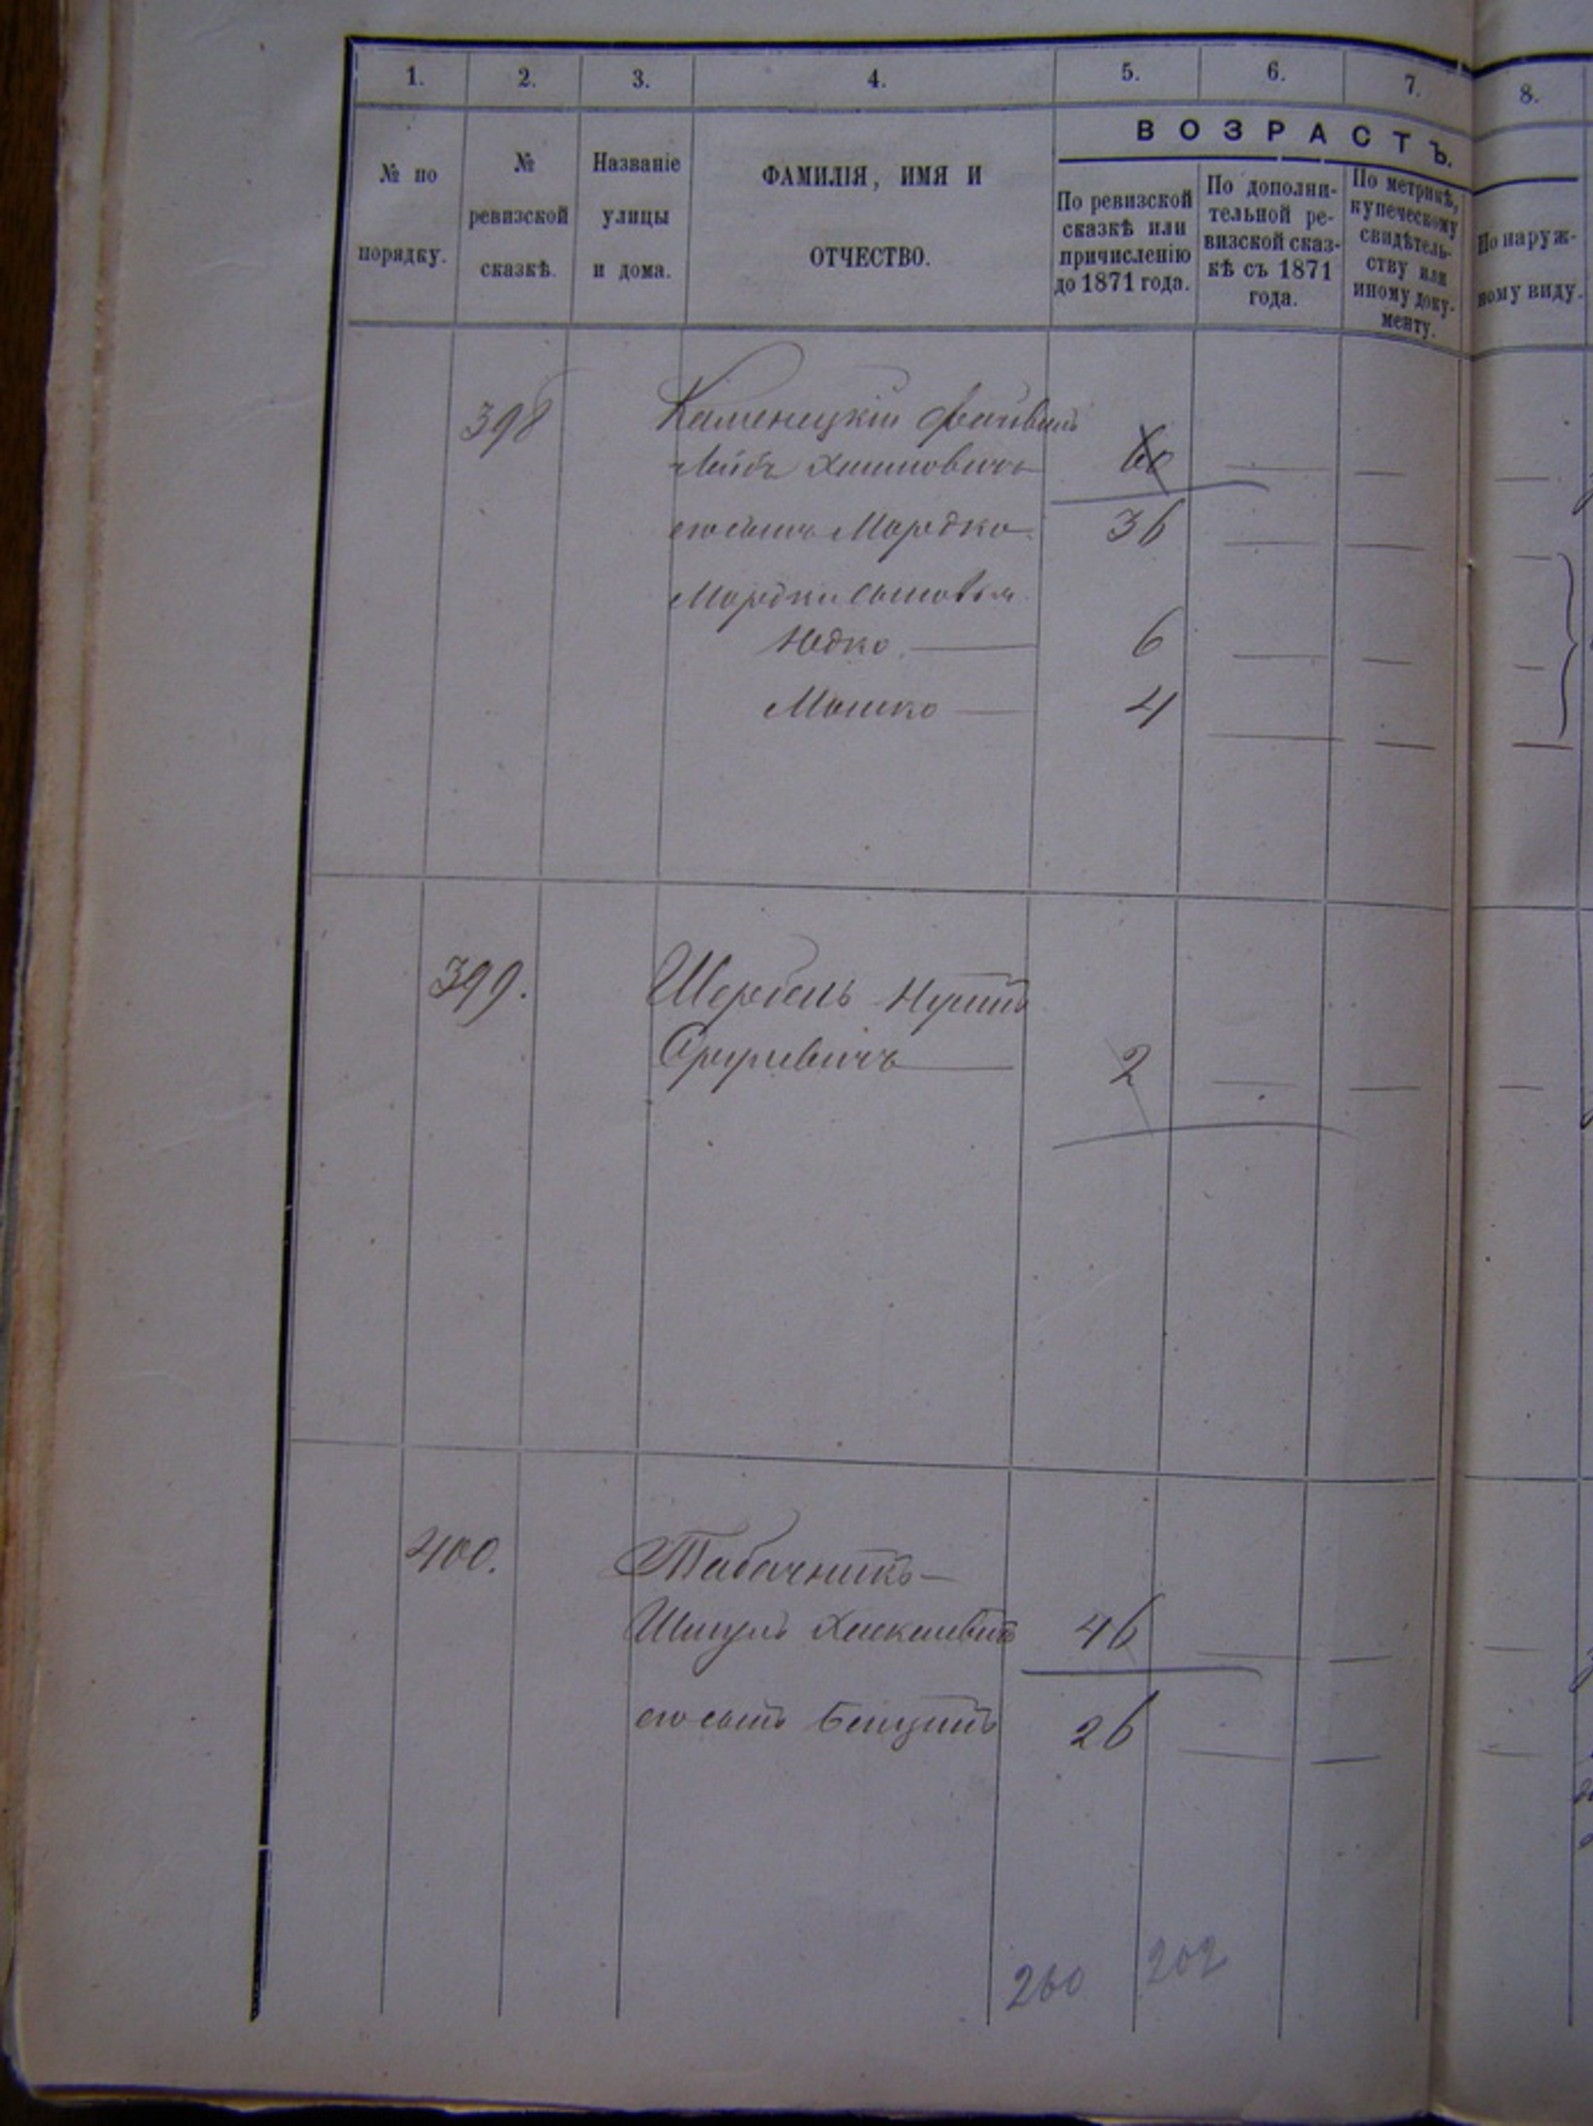 1. 2. 3. 4. 5. 6. 7. 8.
ВОЗРАСТЪ.
№ по порядку.
№ ревизской сказкѣ.
Названіе улицы и дома.
ФАМИЛІЯ, ИМЯ И ОТЧЕСТВО.
По ревизской сказкѣ или причисленію до 1871 года.
По дополнительной ревизской сказкѣ съ 1871 года.
По метрикѣ, купеческому свидѣтельству или иному документу.
По наружному виду.
398 Каменецкій Файвель
Лейбъ Хаимовичъ 60
его сынъ Мордко 36
Мордки сыновья
Юдко 6
Мошко 4
399. Шербель
2
400. Табачникъ
Шмуль 46
его сынъ Бенціонъ 26
260 202